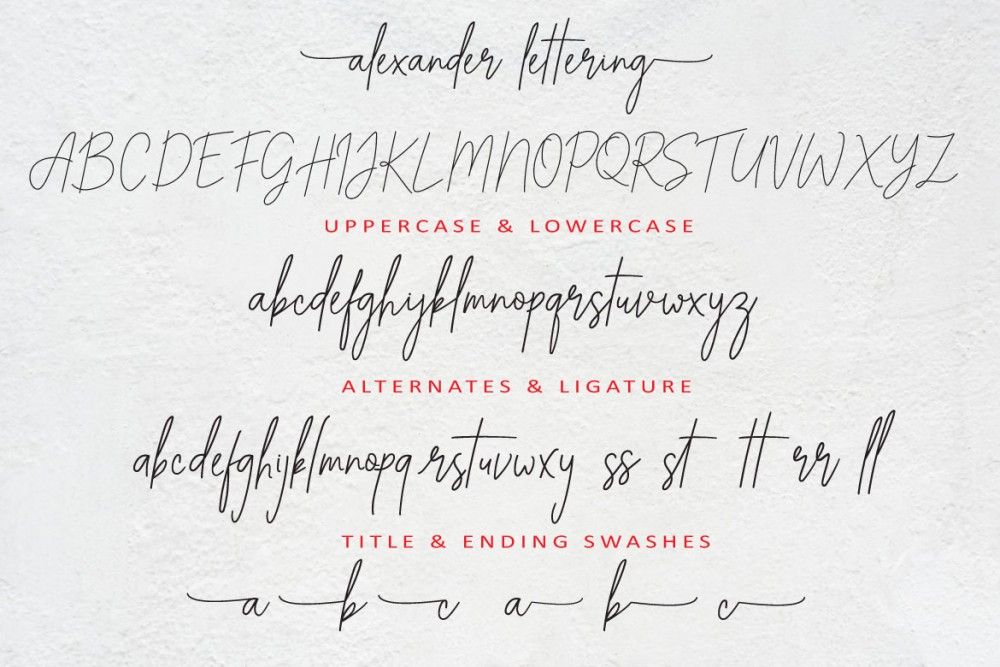 alexander lettering
ABCDEFGHIJKLMNOPQRSTUVWXYZ
UPPERCASE & LOWERCASE
abcdefghijklmnopqrstuvwxyz
ALTERNATES & LIGATURE
abcdefghijklmnopqrstuvwxy ss st tt rr ll
TITLE & ENDING SWASHES
a b c a b c